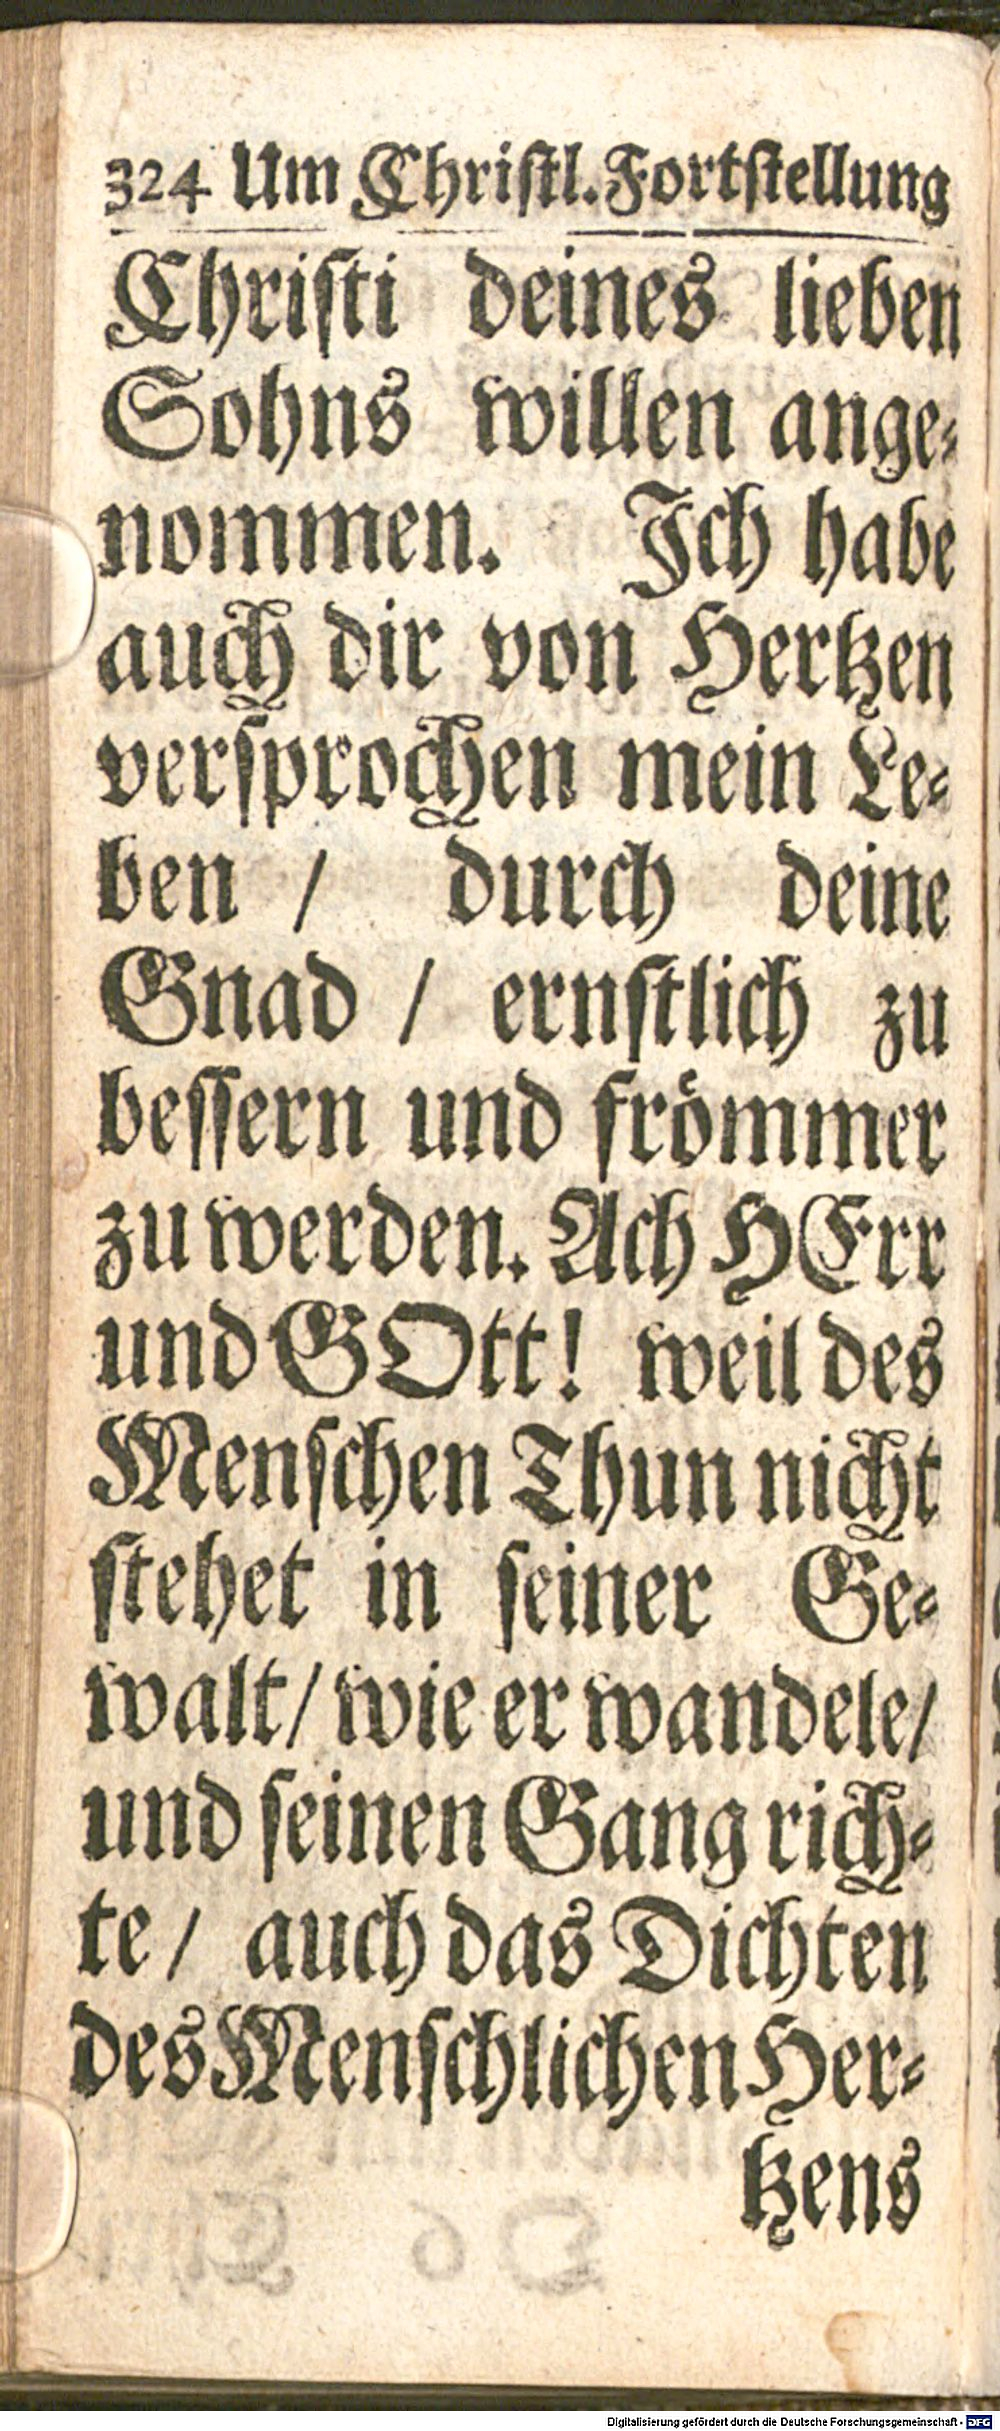 324 Um Christl. Fortstellung
Christi deines lieben
Sohns willen ange-
nommen. Ich habe
auch dir von Hertzen
versprochen mein Le-
ben / durch deine
Gnad / ernstlich zu
bessern und frömmer
zu werden. Ach HErr
und GOtt! weil des
Menschen Thun nicht
stehet in seiner Ge-
walt / wie er wandele /
und seinen Gang rich-
te / auch das Dichten
des Menschlichen Her-
tzens
Digitalisierung gefördert durch die Deutsche Forschungsgemeinschaft - DFG